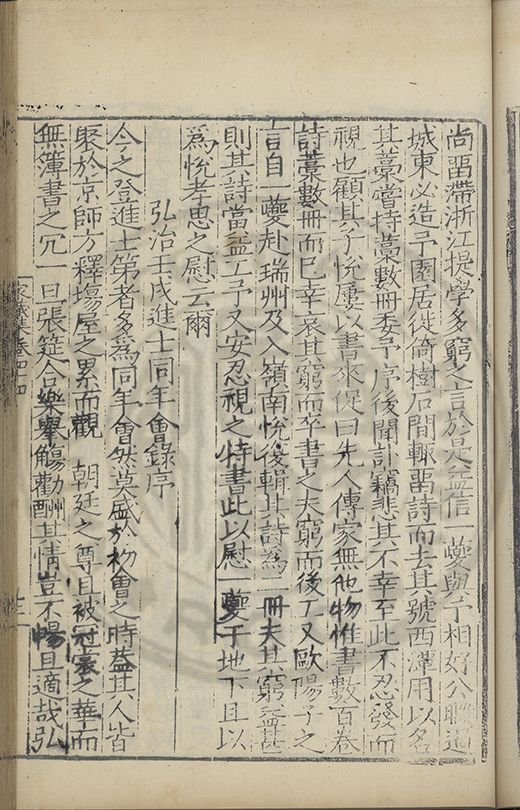 尚留滯浙江提學多窮之言於是益信一夔與予相好公暇過
城東必造予園居徙倚樹石間輒留詩而去其號西潭用以名
其藁嘗持藁數冊委予序後聞訃竊悲其不幸至此不忍發而
視也顧其子悅屢以書來促曰先人傳家無他物惟書數百卷
詩藁數冊而已幸哀其窮而卒書之夫窮而後工又歐陽子之
言自一夔赴瑞州及入嶺南悅復輯其詩為二冊夫其窮益甚
則其詩當益工予又安忍視之特書此以慰一夔于地下且以
為悅孝思之慰云爾
弘治壬戌進士同年會錄序
今之登進士第者多為同年會然莫盛於初會之時蓋其人皆
聚於京師方釋場屋之累而觀 朝廷之尊且被冠裳之華而
無簿書之冗一旦張筵合樂舉觴勸酬其情豈不暢且適哉弘
家藏集卷四十四